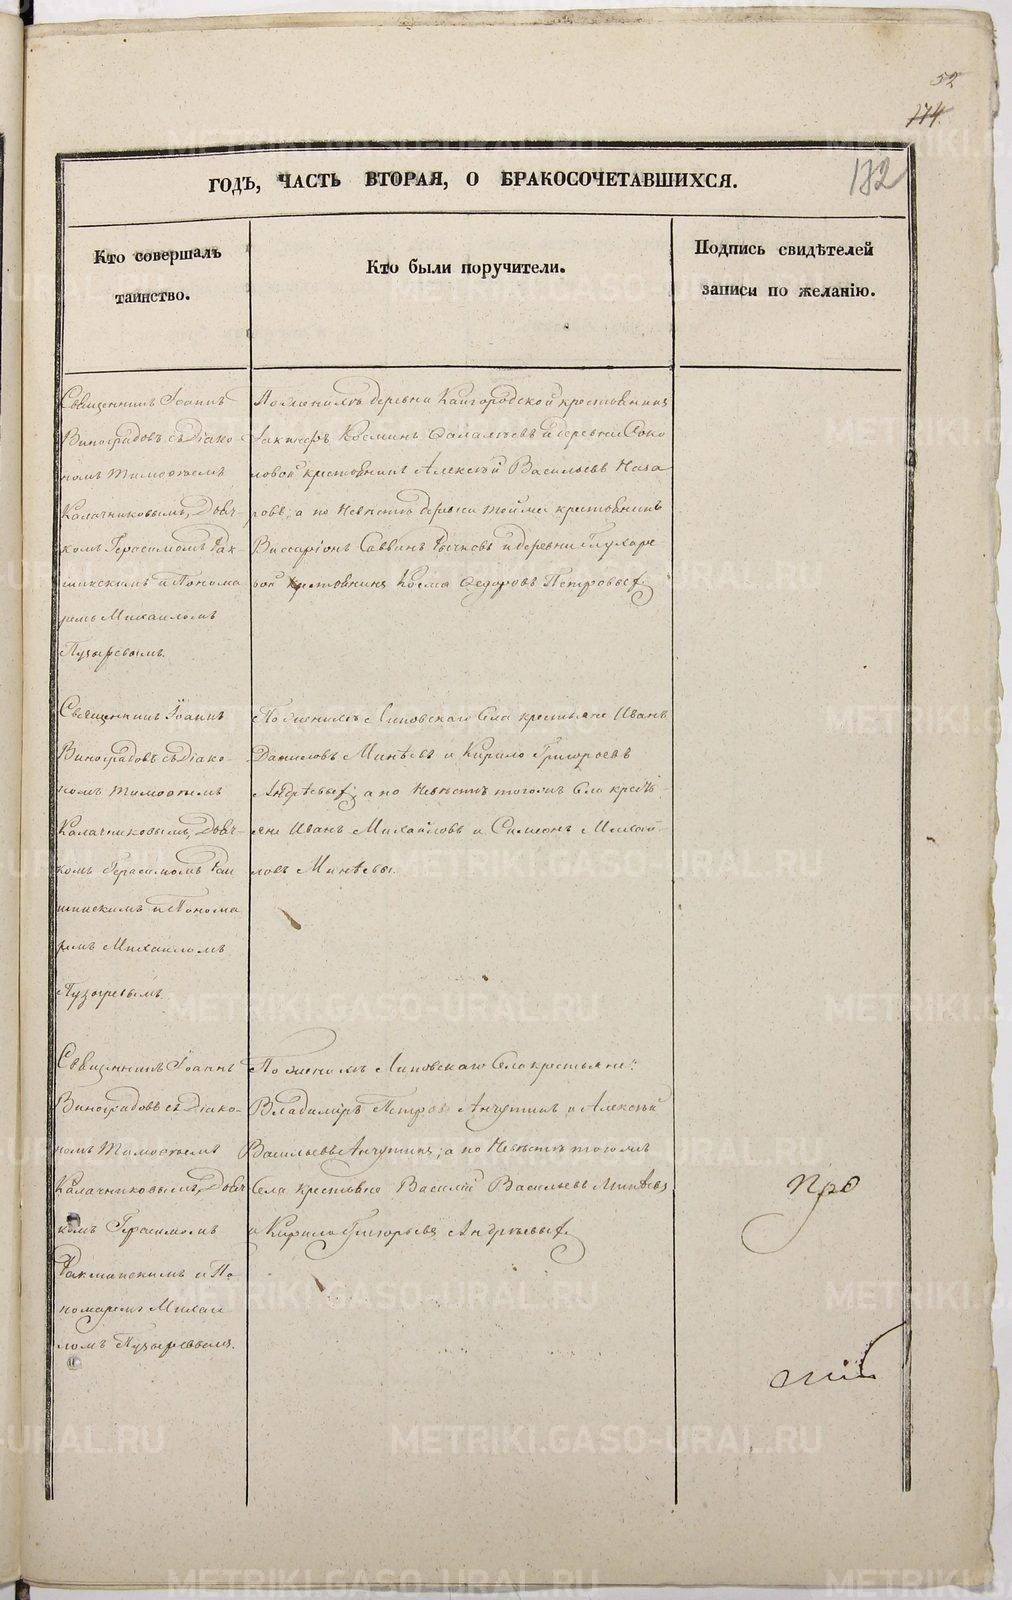 52
174.
172
ГОДЪ, ЧАСТЬ ВТОРАЯ, О БРАКОСОЧЕТАВШИХСЯ.
Кто совершалъ
таинство.
Кто были поручители.
Подпись свидѣтелей
записи по желанію.
Священникъ Іоаннъ
Виноградовъ съ Діако-
номъ Тимоѳеемъ
Калачниковымъ, Дьяч-
комъ Герасимомъ
и Понома
ремъ Михаиломъ
Пузыревымъ.
По женихѣ деревни Кайгородской крестьянинъ
Козминъ и деревни Соко
ловой крестьянинъ Алексѣй Васильевъ Наза
ровъ; а по Невѣстѣ деревни крестьянинъ
Виссаріонъ Саввинъ и деревни Глухаре
вой крестьянинъ Косма Ѳедоровъ Петровых.
Священникъ Іоаннъ
Виноградовъ съ Діако-
номъ Тимоѳеемъ
Калачниковымъ, Дьяч-
комъ Герасимомъ
и Понома
ремъ Михаиломъ
Пузыревымъ.
По женихѣ Липовскаго Села крестьяне Иванъ
Даниловъ Минѣевъ и Кирило Григорьевъ
Андрѣевых; а по Невѣстѣ тогожъ Села кресть-
яне Иванъ Михайловъ и Симеонъ Михай
ловъ Минѣевы.
Священникъ Іоаннъ
Виноградовъ съ Діако-
номъ Тимоѳеемъ
Калачниковымъ, Дьяч
комъ Герасимомъ
и По-
номаремъ Михаи
ломъ Пузыревымъ.
По женихѣ Липовскаго Села крестьяне:
Владиміръ Петровъ Анчутинъ и Алексѣй
Васильевъ Анчутинъ; а по Невѣстѣ тогожъ
Села крестьяне Василій Васильевъ Минѣевъ
и Кирило Григорьевъ Андрѣевых.
Про
METRIKI.GASO-URAL.RU